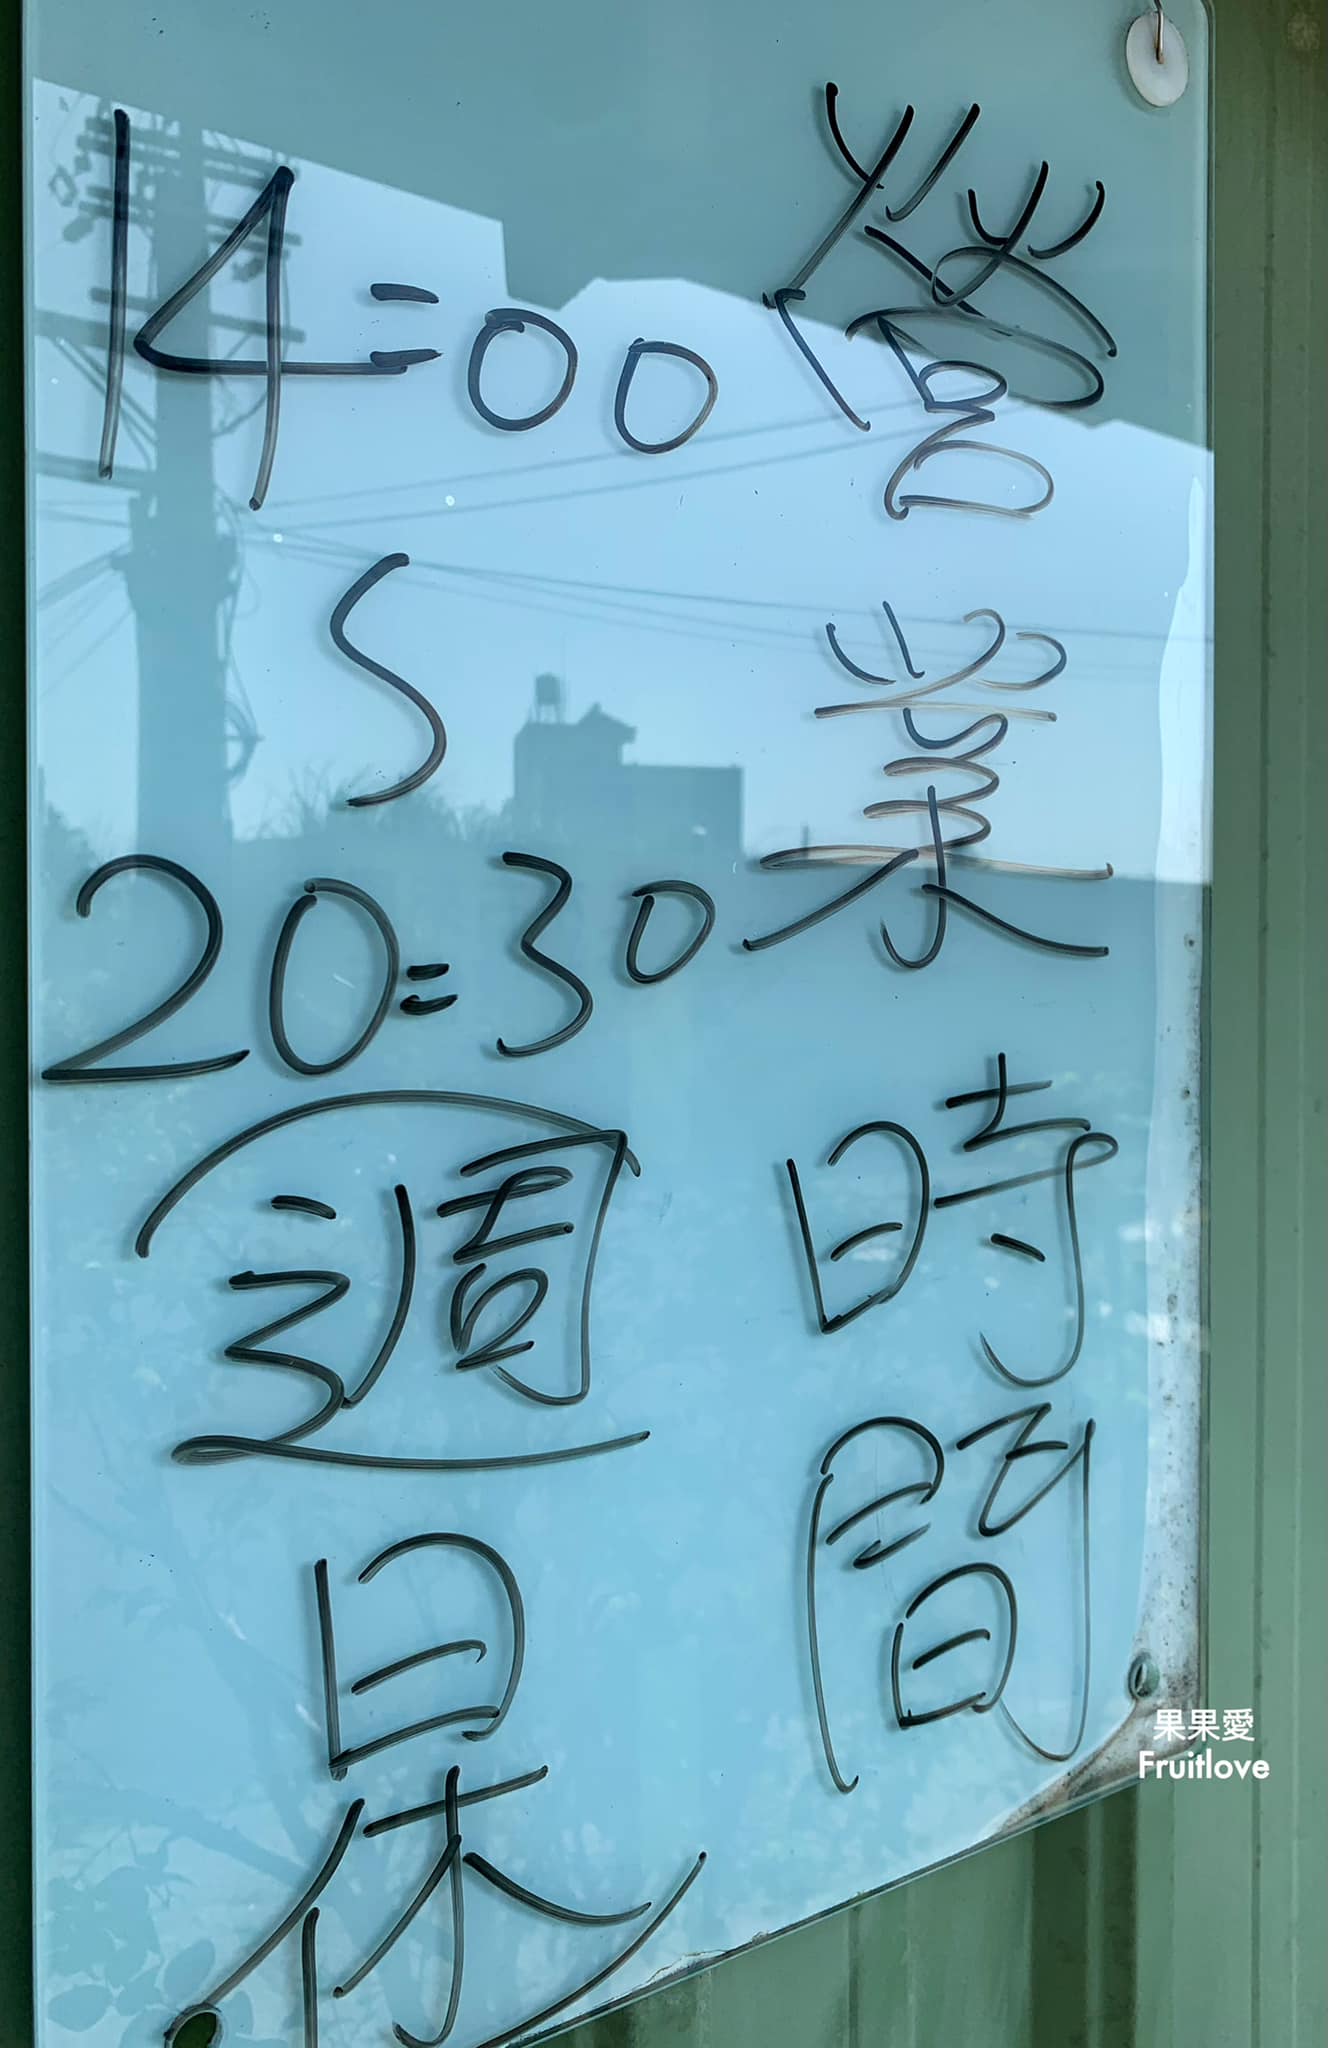 營業時間
14:00
S
20:30
(週日休)
果果愛
Fruitlove